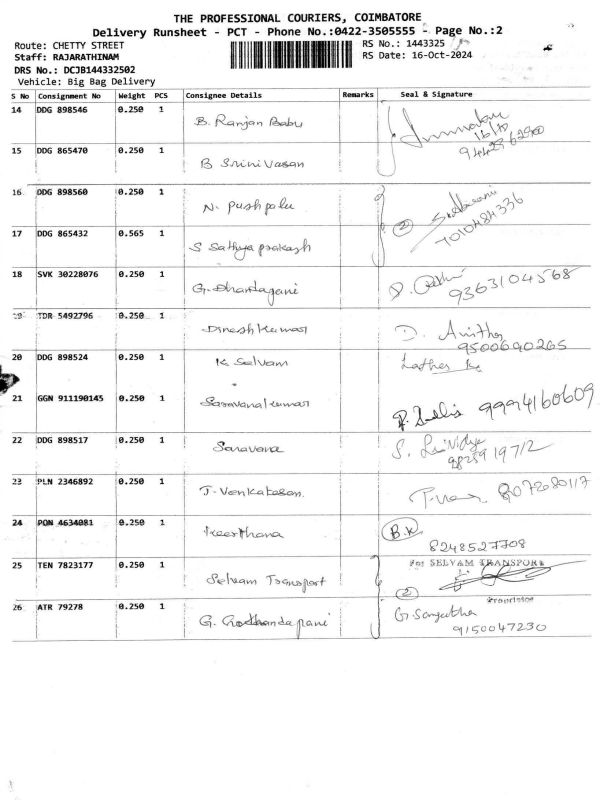 THE PROFESSIONAL COURIERS, COIMBATORE
Delivery Runsheet - PCT - Phone No.:0422-3505555 - Page No.:2
Route: CHETTY STREET
RS No.: 1443325
Staff: RAJARATHINAM
RS Date: 16-Oct-2024
DRS No.: DCJB144332502
Vehicle: Big Bag Delivery
S No Consignment No Weight PCS Consignee Details Remarks Seal & Signature
14 DDG 898546 0.250 1 B. Ranjan Babu
16/10
15 DDG 865470 0.250 1 B Srinivasan
16 DDG 898560 0.250 1 N. Pushpalu
2
7010484336
17 DDG 865432 0.565 1 S Sathya prakash
18 SVK 30228076 0.250 1 G. Dhandapani
9363104568
19 TDR 5492796 0.250 1 Dinesh kumar D. Anitha
9500690265
20 DDG 898524 0.250 1 K. Selvam Latha K
21 GGN 911190145 0.250 1 Saravanakumar 9994160609
22 DDG 898517 0.250 1 Saravana
23 PLN 2346892 0.250 1 T. Venkatesan 8072080117
24 PON 4634081 0.250 1 Keerthana B.K
8248527708
25 TEN 7823177 0.250 1 Selvam Transport For SELVAM TRANSPORT
2
Proprietor
26 ATR 79278 0.250 1 G. Godhandapani G. Sangeetha
9150047230